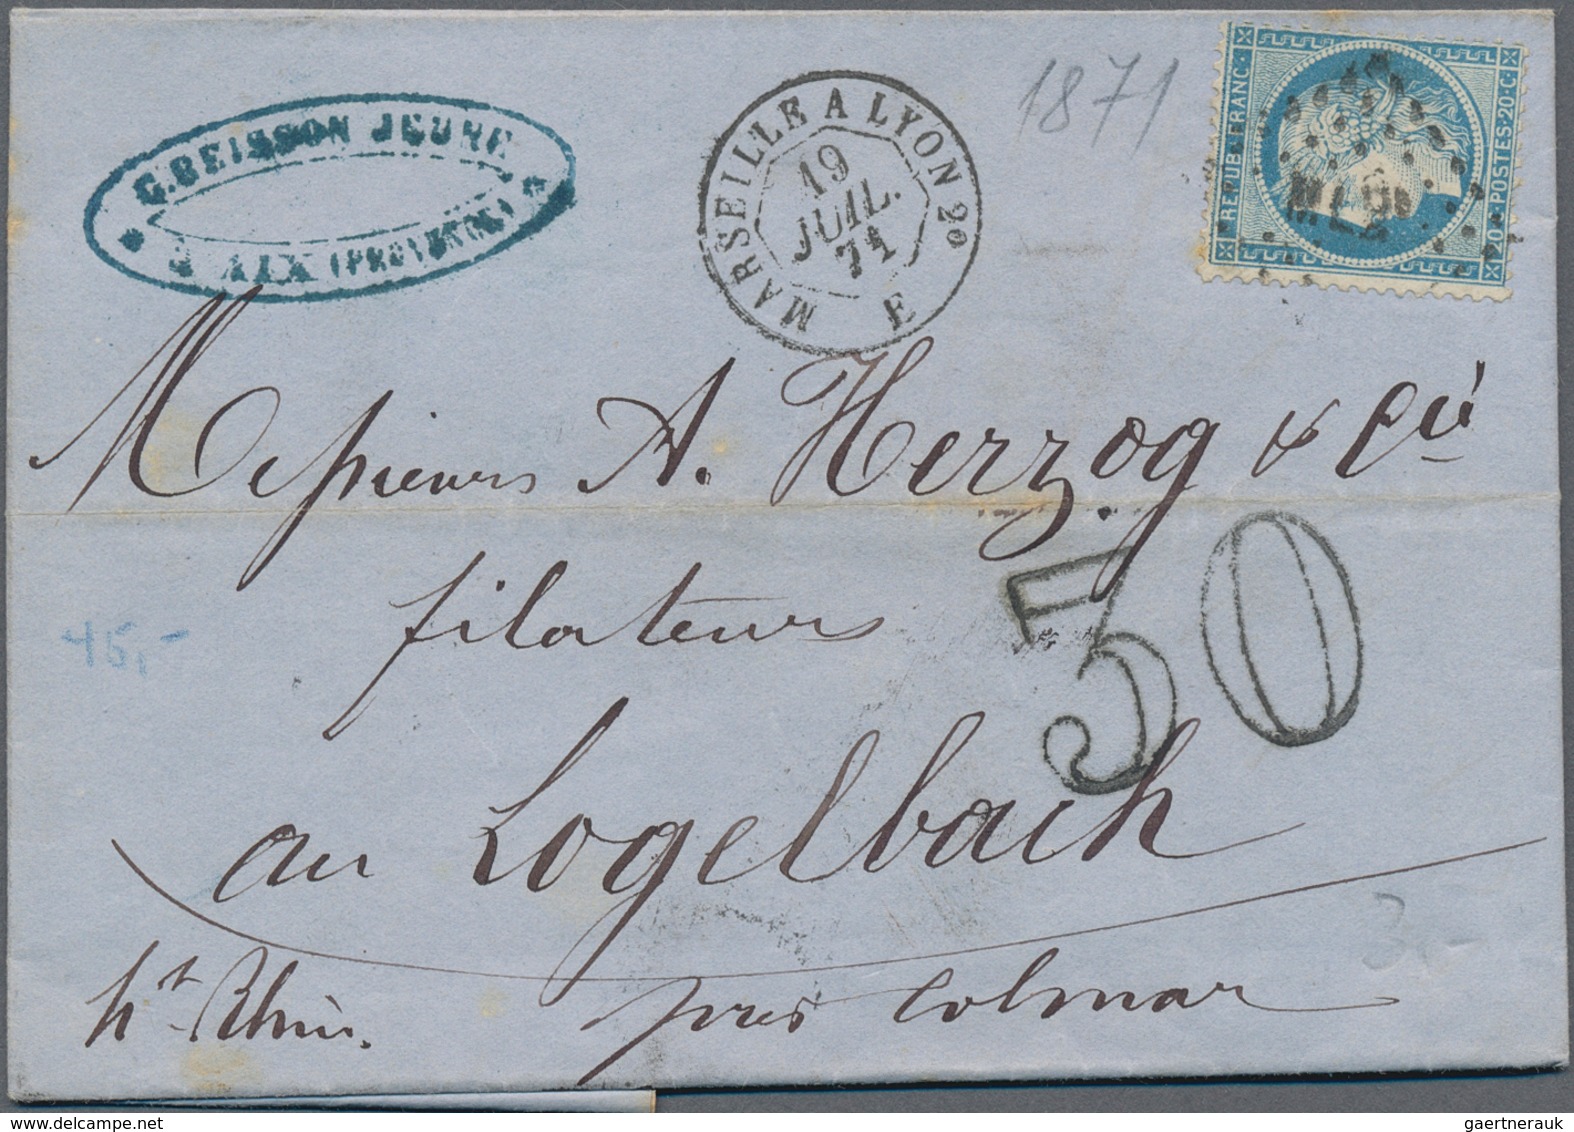 C. BEISSON JEUNE
* À AIX (PROVENCE) *
MARSEILLE A LYON 2º
19
JUIL.
71
E
1871
REPUB. FRANC.
POSTES · 20 · C
Messieurs A. Herzog & Cie
filateurs
30
45,-
au Logelbach
3,-
ht. Rhin. près Colmar
gaertnerauk